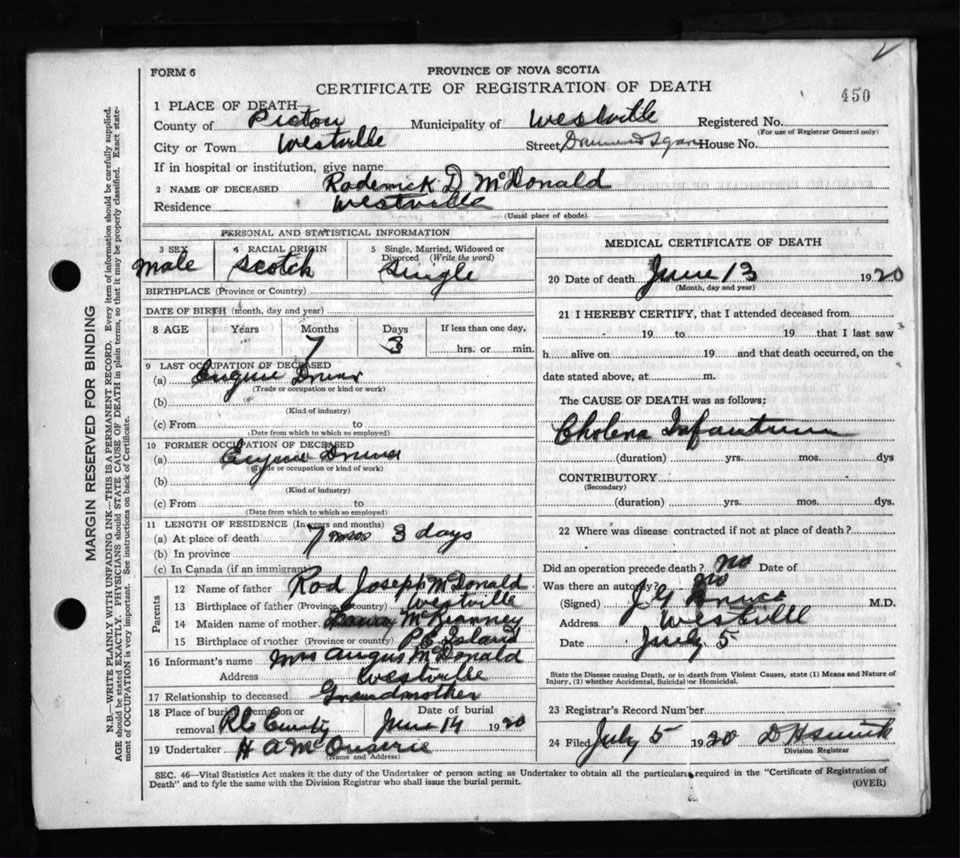 FORM 6
PROVINCE OF NOVA SCOTIA
CERTIFICATE OF REGISTRATION OF DEATH
450
1 PLACE OF DEATH—
County of Pictou Municipality of Westville Registered No.
(For use of Registrar General only)
City or Town Westville Street House No.
If in hospital or institution, give name
2 NAME OF DECEASED Roderick D McDonald
Residence Westville
(Usual place of abode)
PERSONAL AND STATISTICAL INFORMATION
3 SEX 4 RACIAL ORIGIN 5 Single, Married, Widowed or Divorced (Write the word)
Male Scotch Single
BIRTHPLACE (Province or Country)
DATE OF BIRTH (month, day and year)
8 AGE Years Months Days If less than one day,
7 3 hrs. or min.
9 LAST OCCUPATION OF DECEASED
(a) Engine Driver
(Trade or occupation or kind or work)
(b)
(Kind of industry)
(c) From to
(Date from which to which so employed)
10 FORMER OCCUPATION OF DECEASED
(a) Engine Driver
(Trade or occupation or kind of work)
(b)
(Kind of industry)
(c) From to
(Date from which to which so employed)
11 LENGTH OF RESIDENCE (In years and months)
(a) At place of death 7 mos 3 days
(b) In province
(c) In Canada (if an immigrant)
Parents
12 Name of father Rod Joseph McDonald
13 Birthplace of father (Province or country) Westville
14 Maiden name of mother
15 Birthplace of mother (Province or country) P.E. Island
16 Informant's name Mrs Angus McDonald
Address Westville
17 Relationship to deceased Grandmother
18 Place of burial, cremation or removal Date of burial
June 14 1920
19 Undertaker H A McQuarrie
(Name and Address)
MEDICAL CERTIFICATE OF DEATH
20 Date of death June 13 1920
(Month, day and year)
21 I HEREBY CERTIFY, that I attended deceased from
19 to 19 that I last saw
h alive on 19 and that death occurred, on the
date stated above, at m.
The CAUSE OF DEATH was as follows:
Cholera Infantum
(duration) yrs. mos. dys
CONTRIBUTORY
(Secondary)
(duration) yrs. mos. dys.
22 Where was disease contracted if not at place of death?
Did an operation precede death? no Date of
Was there an autopsy? no
(Signed) M.D.
Address Westville
Date July 5
State the Disease causing Death, or in death from Violent Causes, state (1) Means and Nature of
Injury, (2) whether Accidental, Suicidal or Homicidal.
23 Registrar's Record Number
24 Filed July 5 1920
Division Registrar
SEC. 46—Vital Statistics Act makes it the duty of the Undertaker or person acting as Undertaker to obtain all the particulars required in the "Certificate of Registration of
Death" and to fyle the same with the Division Registrar who shall issue the burial permit.
(OVER)
MARGIN RESERVED FOR BINDING
N.B.—WRITE PLAINLY WITH UNFADING INK—THIS IS A PERMANENT RECORD. Every item of information should be carefully supplied.
AGE should be stated EXACTLY. PHYSICIANS should STATE CAUSE OF DEATH in plain terms, so that it may be properly classified. Exact statement
of OCCUPATION is very important. See instructions on back of Certificate.